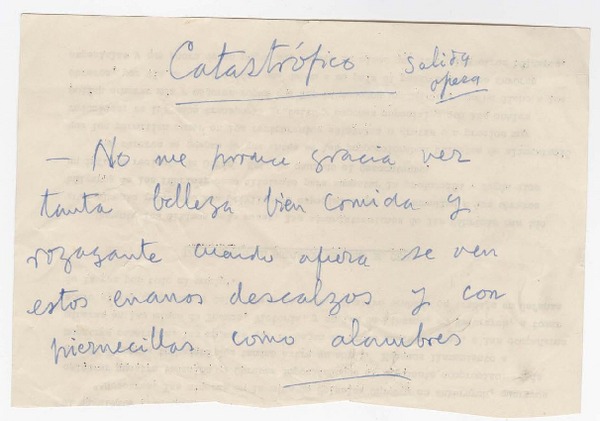 Catastrófico
salida
opera
— No me produce gracia ver
tanta belleza bien comida y
rozagante cuando afuera se ven
estos enanos descalzos y con
piernecillas como alambres